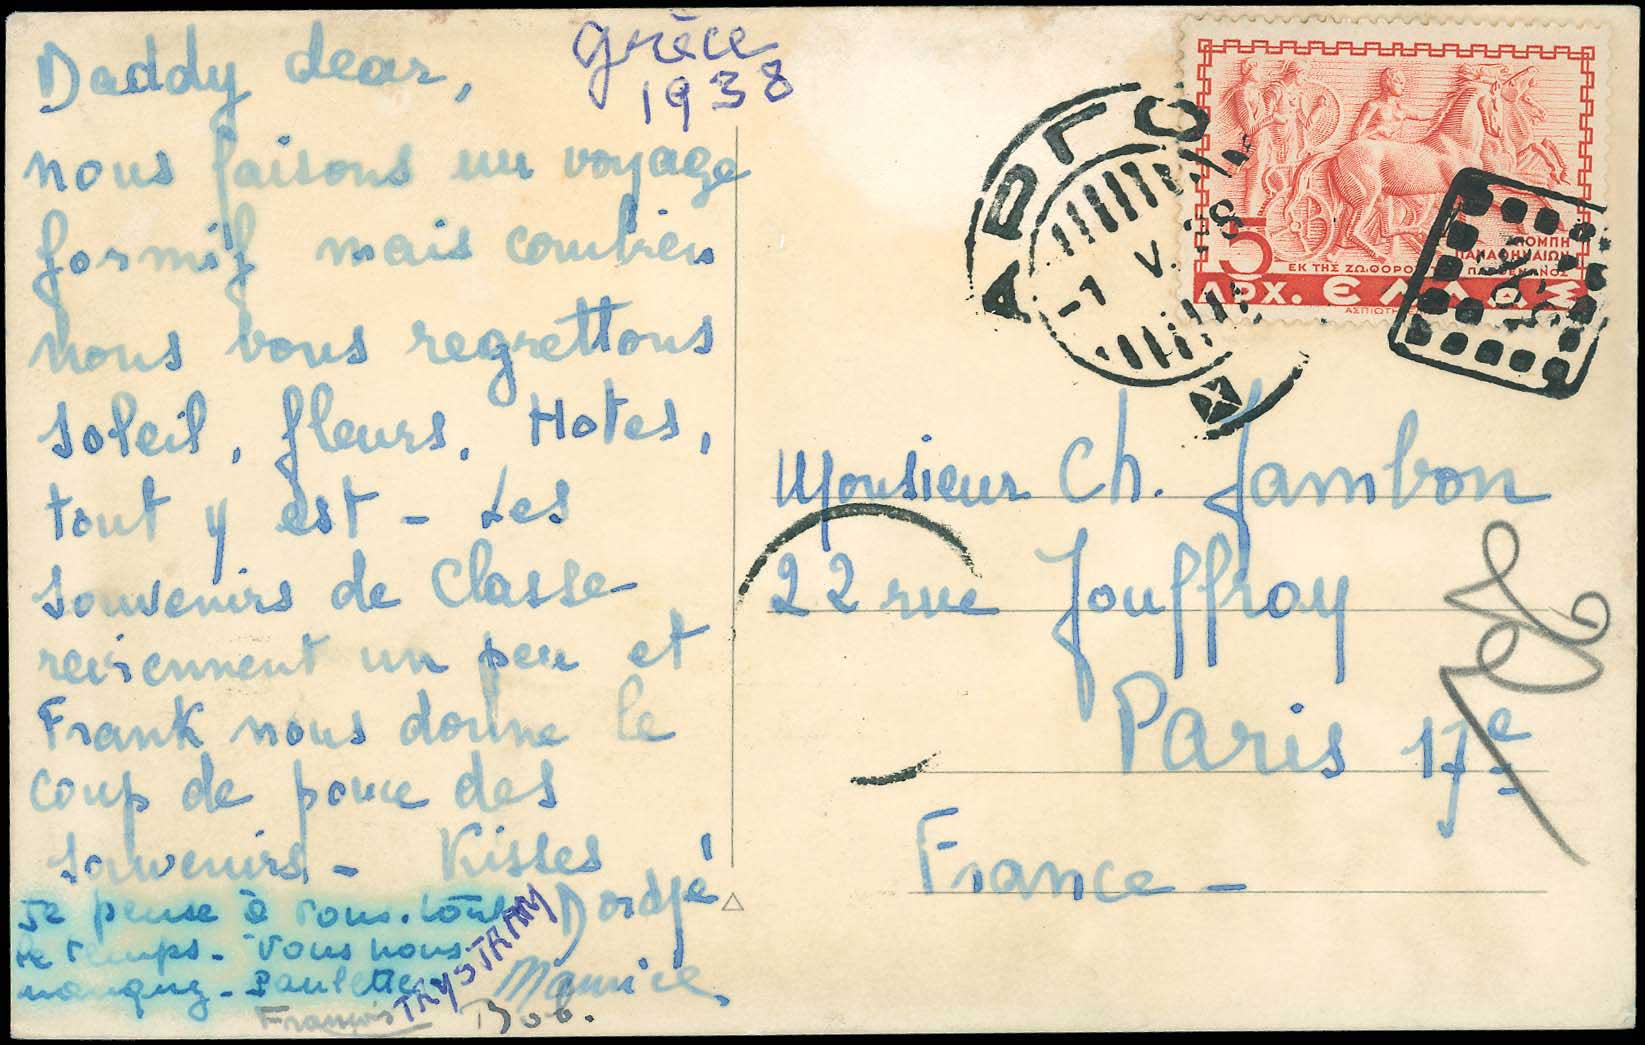 Grèce
1938
Daddy dear,
nous faisons un voyage
formid mais combien
nous vous regrettons
Soleil, fleurs, Hotes,
tout y est - Les
souvenirs de Classe
reviennent un peu et
Frank nous donne le
coup de pouce des
souvenirs - Kisses
Dordjé
Je pense à vous tout
le temps - Vous nous
manquez - Paulette
Maurice
François TRYSTRAM
Bob.
ΑΡΓΟ
-1 V. 38
5
ΠΟΜΠΗ
ΠΑΝΑΘΗΝΑΙΩΝ
ΕΚ ΤΗΣ ΖΩΦΟΡΟ ΠΑΡΘΕΝΩΝΟΣ
ΔΡΧ. ΕΛΛΑΣ
Monsieur Ch. Jambon
22 rue Jouffroy
Paris 17e
France -